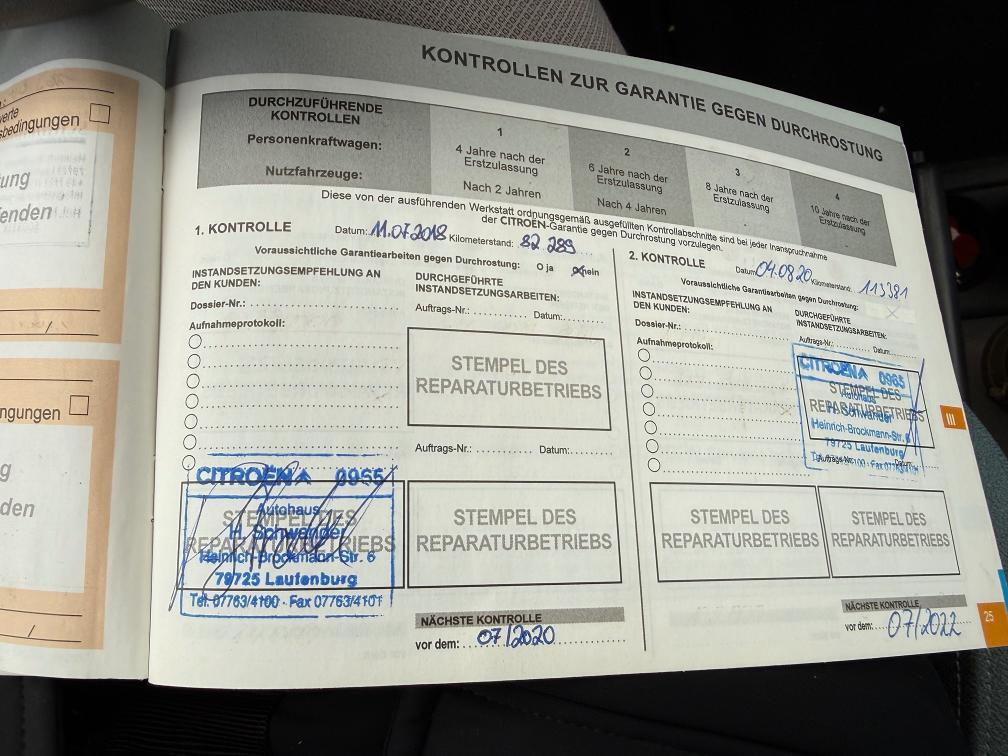 KONTROLLEN ZUR GARANTIE GEGEN DURCHROSTUNG
DURCHZUFÜHRENDE
KONTROLLEN
Personenkraftwagen:
Nutzfahrzeuge:
1
4 Jahre nach der
Erstzulassung
Nach 2 Jahren
2
6 Jahre nach der
Erstzulassung
Nach 4 Jahren
3
8 Jahre nach der
Erstzulassung
4
10 Jahre nach der
Erstzulassung
Diese von der ausführenden Werkstatt ordnungsgemäß ausgefüllten Kontrollabschnitte sind bei jeder Inanspruchnahme
der CITROËN-Garantie gegen Durchrostung vorzulegen.
1. KONTROLLE Datum: 11.07.2018 Kilometerstand: 82 289
Voraussichtliche Garantiearbeiten gegen Durchrostung: O ja nein
INSTANDSETZUNGSEMPFEHLUNG AN
DEN KUNDEN:
Dossier-Nr.:
Aufnahmeprotokoll:
DURCHGEFÜHRTE
INSTANDSETZUNGSARBEITEN:
Auftrags-Nr.: Datum:
STEMPEL DES
REPARATURBETRIEBS
Auftrags-Nr.: Datum:
STEMPEL DES
REPARATURBETRIEBS
STEMPEL DES
REPARATURBETRIEBS
CITROËN 0965
Autohaus
H. Schwander
Heinrich-Brockmann-Str. 6
79725 Laufenburg
Tel. 07763/4100 · Fax 07763/4101
NÄCHSTE KONTROLLE
vor dem: 07/2020
2. KONTROLLE Datum 04.08.20 Kilometerstand: 113381
Voraussichtliche Garantiearbeiten gegen Durchrostung:
INSTANDSETZUNGSEMPFEHLUNG AN
DEN KUNDEN:
Dossier-Nr.:
Aufnahmeprotokoll:
DURCHGEFÜHRTE
INSTANDSETZUNGSARBEITEN:
Auftrags-Nr.: Datum:
STEMPEL DES
REPARATURBETRIEBS
CITROËN 0965
Autohaus
H. Schwander
Heinrich-Brockmann-Str. 6
79725 Laufenburg
Auftrags-Nr.: Datum:
STEMPEL DES
REPARATURBETRIEBS
STEMPEL DES
REPARATURBETRIEBS
NÄCHSTE KONTROLLE
vor dem: 07/2022
III
25